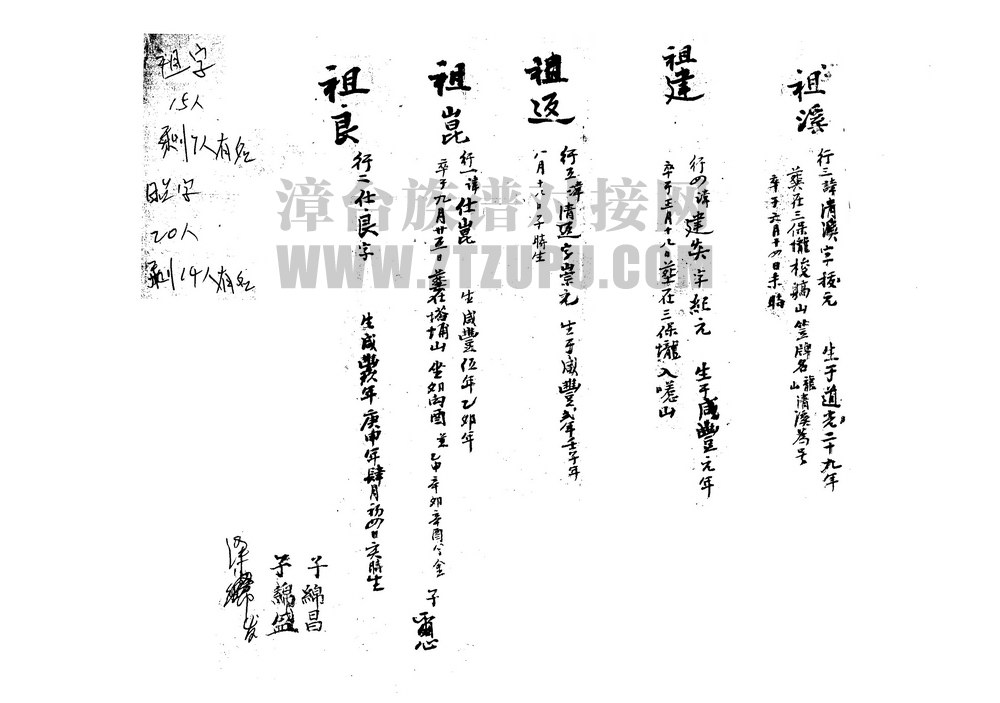 祖溪
行三諱清溪字梭元 生于道光二十九年
葬在三保壠梭䑺山竖牌名龍山清溪為号
卒于六月十四日未時
祖建
行四諱建失字紀元 生于咸豐元年
卒于三月十八日葬在三保壠入噫山
祖返
行五諱清返字崇元 生于咸豐贰年壬子年
八月十八日子時生
祖崑
行一諱仕崑 生咸豐伍年乙卯年
卒于九月廿五日葬在塔埔山坐卯向酉 乙卯辛卯辛酉分金 子
祖良
行二仕良字 生咸豐年庚申年肆月初四日亥時生
子綿昌
子綿盛
祖字
15人
剩7人有名
20人
剩14人有名
漳台族谱对接网
WWW.ZTZUPU.COM